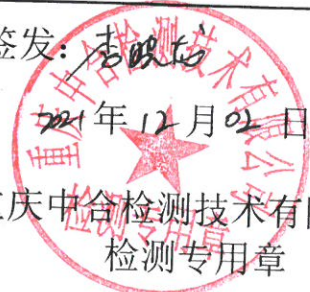 签发：李
2021年12月02日
重庆中合检测技术有限公司
检验专用章
庆中合检测技术有限
检测专用章